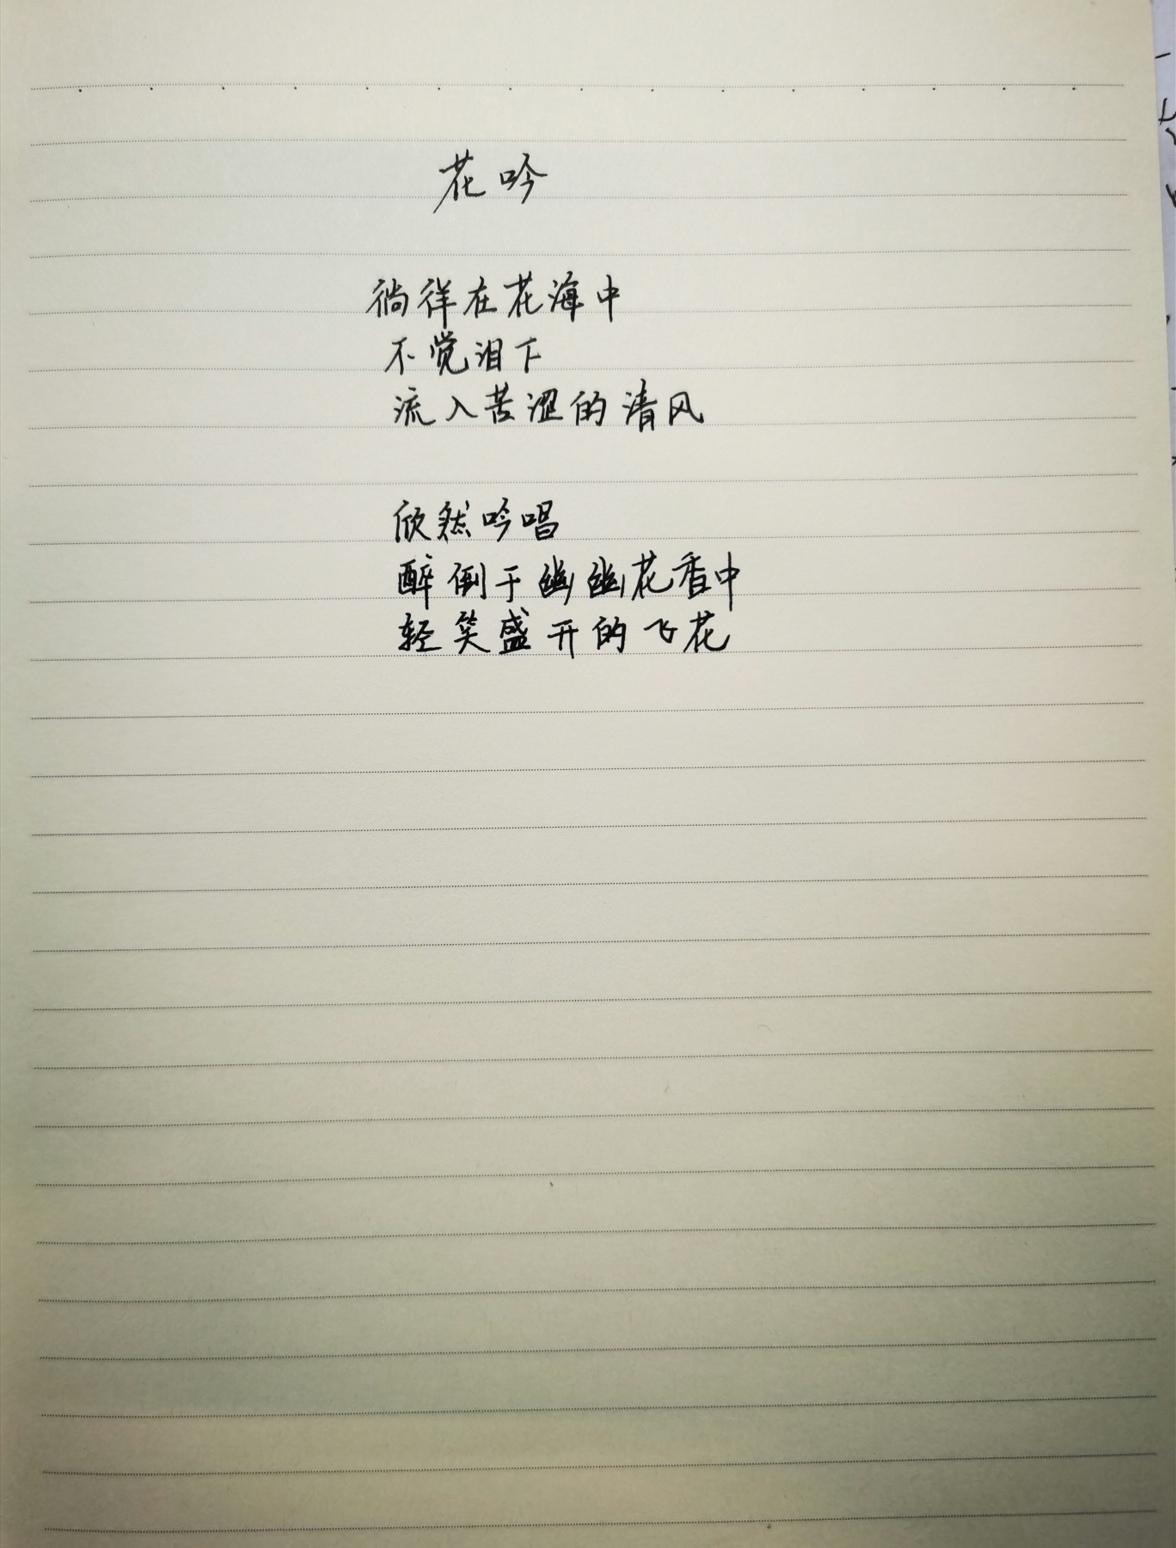 花吟
徜徉在花海中
不觉泪下
流入苦涩的清风
欣然吟唱
醉倒于幽幽花香中
轻笑盛开的飞花